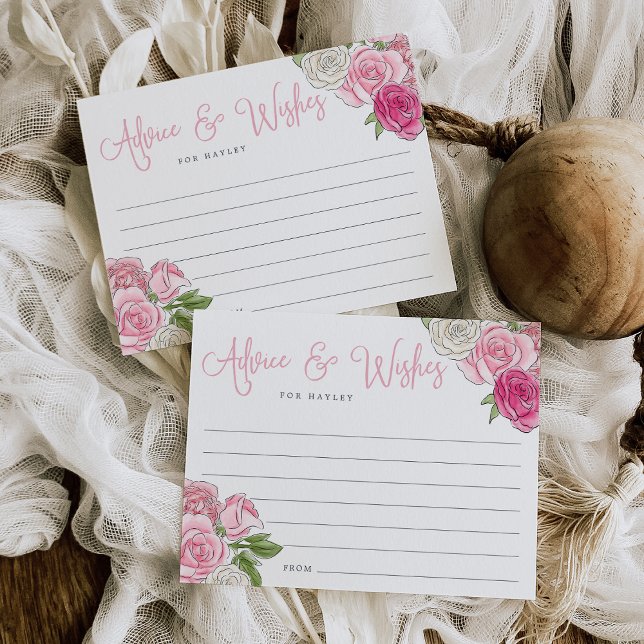 Advice & Wishes
FOR HAYLEY
Advice & Wishes
FOR HAYLEY
FROM